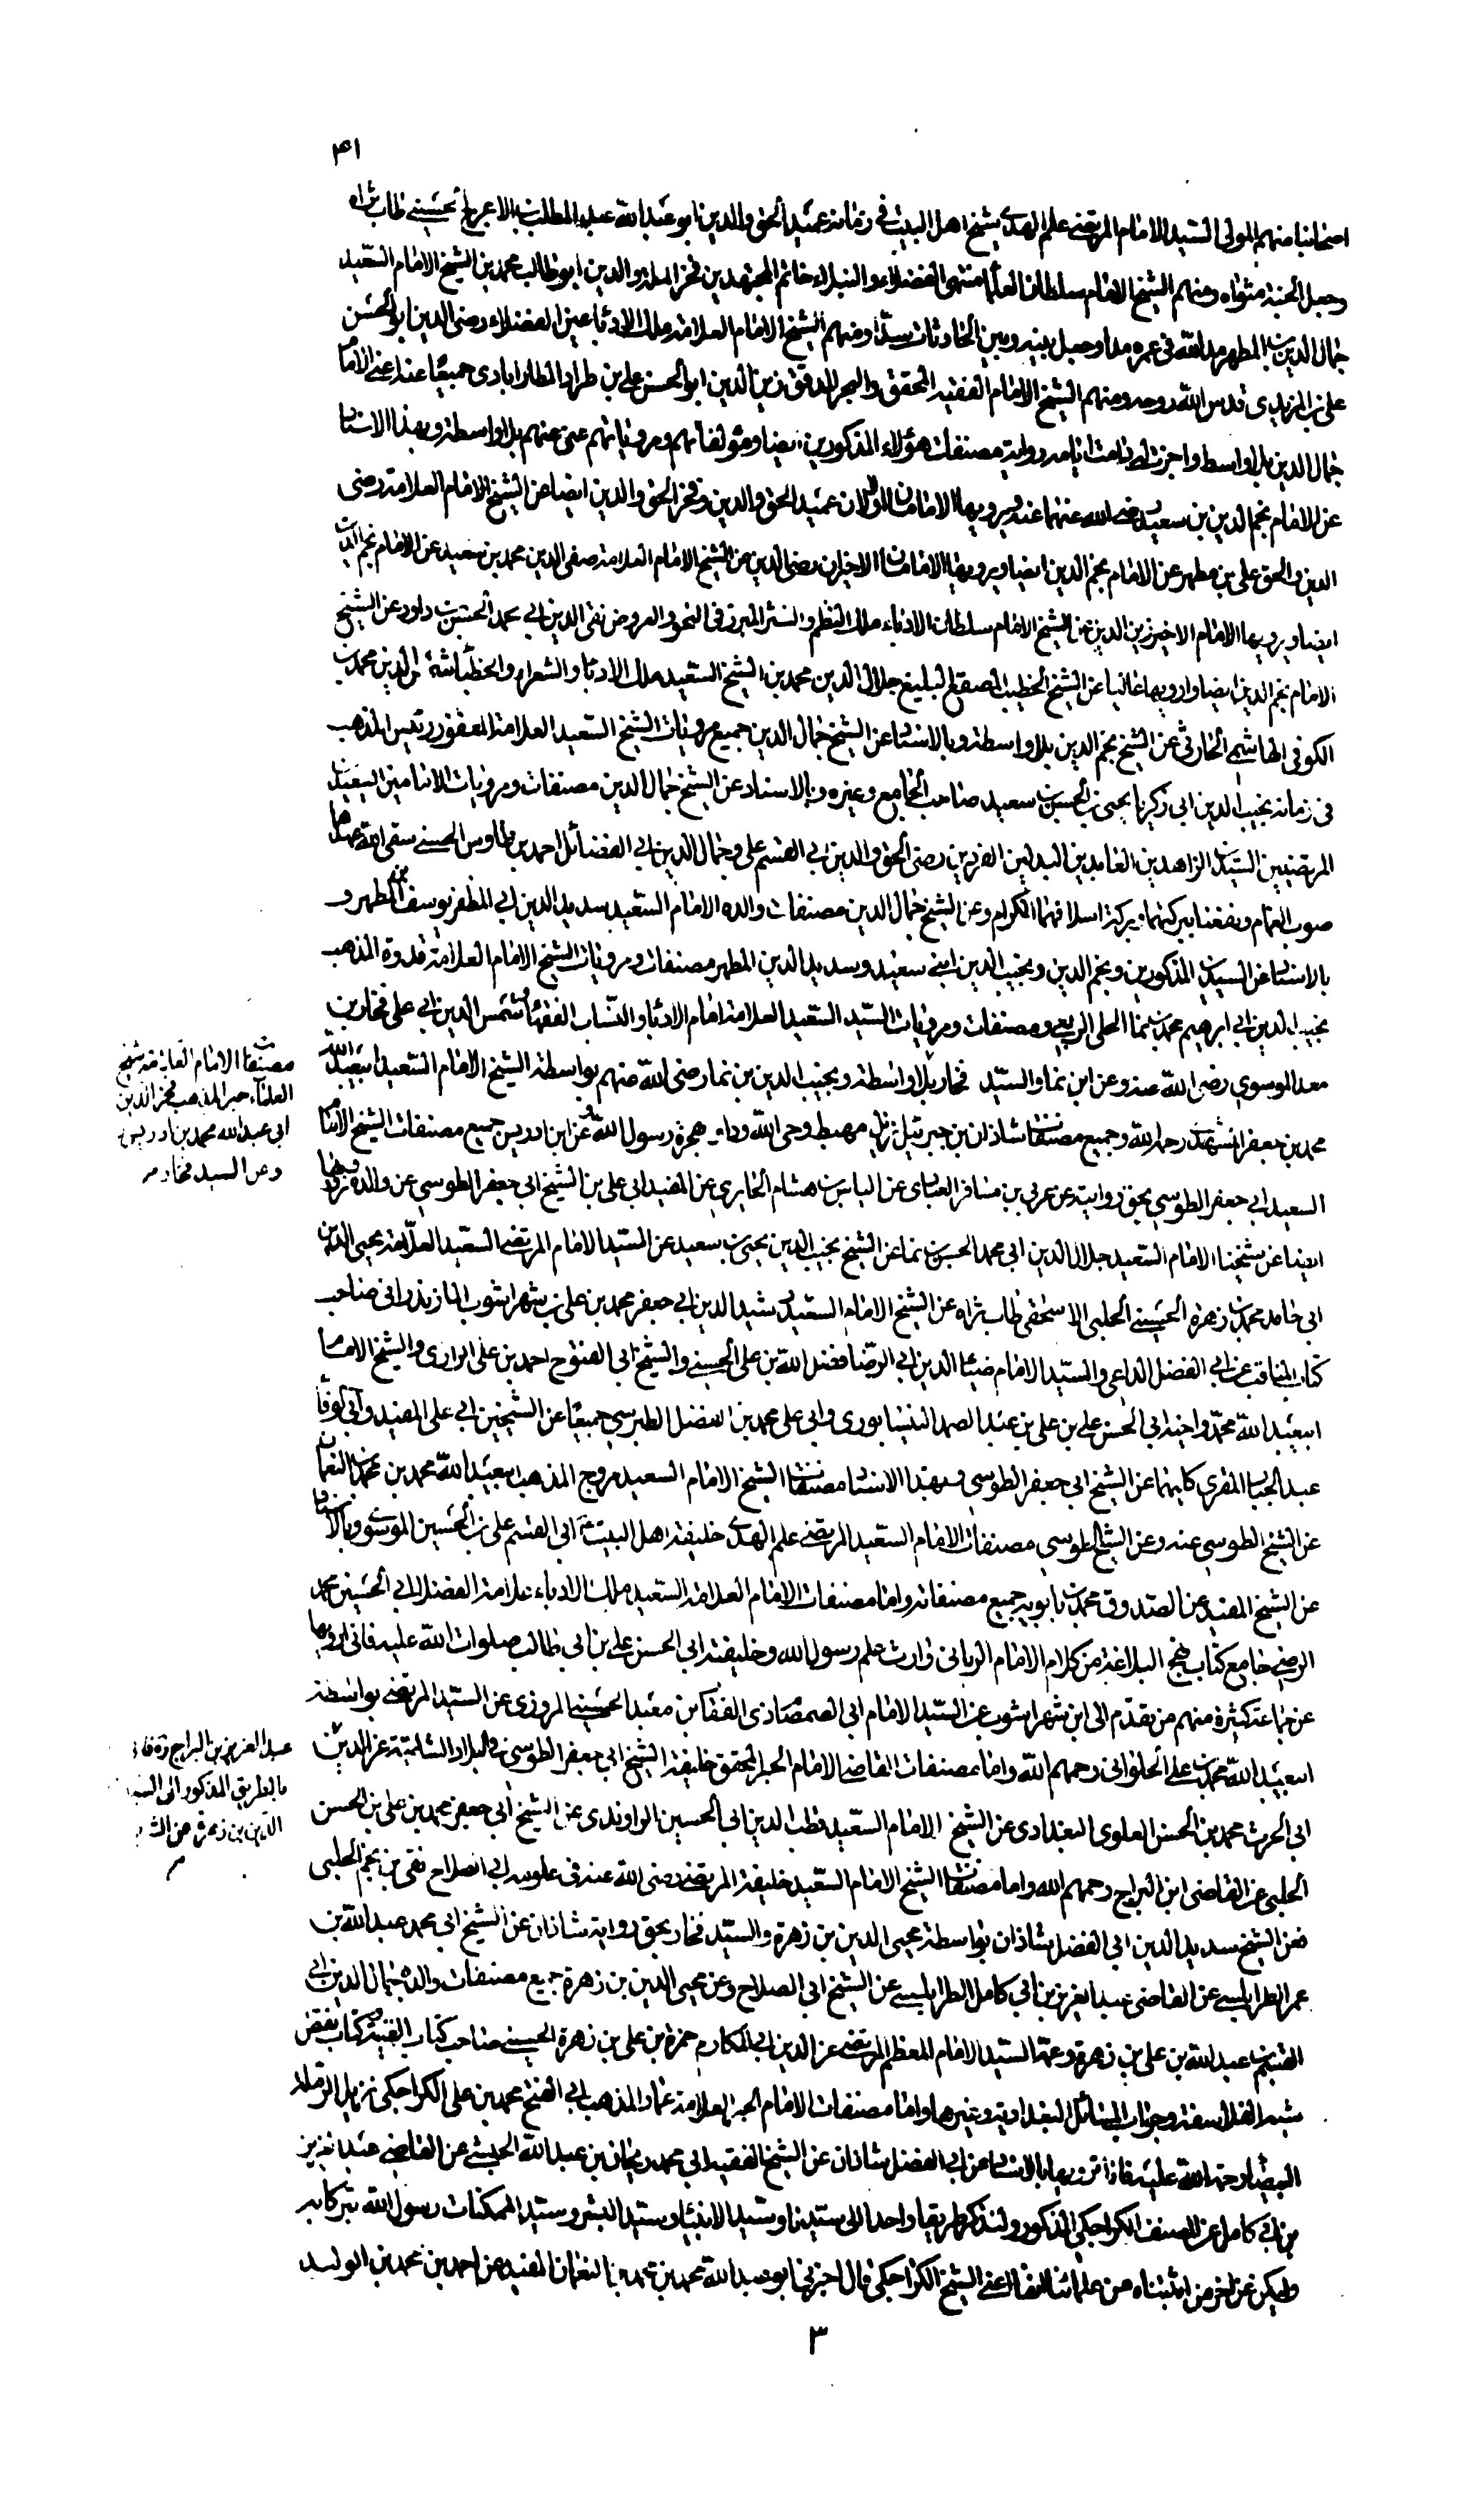 ٤١
اصحابنا منهم المولى السيد الامام المرتضى علم الهدى شيخ اهل البيت في زمانه عميد الحق والدين ابو عبد الله عبد المطلب بن الاعرج الحسيني طاب ثراه
وجعل الجنة مثواه ومنهم الشيخ الامام سلطان العلماء منتهى الفضلاء والنبلاء خاتم المجتهدين فخر الملة والدين ابو طالب محمد بن الشيخ الامام السعيد
جمال الدين بن المطهر مد الله في عمره مدا وجعل بينه وبين الحادثات سدا ومنهم الشيخ الامام العلامة ملك الادباء عين الفضلاء رضى الدين ابو الحسن
على بن المزيدى قدس الله روحه ومنهم الشيخ الامام الفقيه المحقق والبحر المدقق زين الدين ابو الحسن على بن طراد المطارابادى جميعا عنه اعنى الامام
جمال الدين بلا واسطة واجزت له دامت ايامه رواية مصنفات هؤلاء المذكورين ايضا ومؤلفاتهم ومروياتهم عنى عنهم بلا واسطة وبهذا الاسناد
عن الامام نجم الدين بن سعيد رضى الله عنهما عنه ويرويها الامامان الاولان عميد الحق والدين وفخر الحق والدين ايضا عن الشيخ الامام العلامة رضى
الدين والحق على بن مطهر عن الامام نجم الدين ايضا ويرويها الامامان الاخيران رضى الدين عن الشيخ الامام العلامة صفى الدين محمد بن سعيد عن الامام نجم الدين
ايضا ويرويها الامام الاخير زين الدين عن الشيخ الامام سلطان الادباء ملك النظم والنثر المبرز في النحو والعروض تقى الدين ابى محمد الحسن بن داود عن الشيخ
الامام نجم الدين ايضا وارويها عاليا عن الشيخ الخطيب المصقع البليغ جلال الدين محمد بن الشيخ السعيد ملك الادباء والشعراء والخطباء شمس الدين محمد بن
الكوفى الهاشمى الحارثى عن الشيخ نجم الدين بلا واسطة وبالاسناد عن الشيخ جمال الدين جميع مرويات الشيخ السعيد العلامة المغفور رئيس المذهب
فى زمانه نجيب الدين ابى زكريا يحيى بن الحسن بن سعيد صاحب الجامع وغيره وبالاسناد عن الشيخ جمال الدين مصنفات ومرويات الامامين السعيدين
المرتضيين السيدين الزاهدين العابدين البدلين الفردين رضى الحق والدين ابى القسم على وجمال الدين ابى الفضائل احمد بن طاوس الحسنى سقى الله عهدهما
صوب الغمام ونفعنا ببركتهما وبركة اسلافهما الكرام وعن الشيخ جمال الدين مصنفات والده الامام السعيد سديد الدين ابى المظفر يوسف بن المطهر و
بالاسناد عن السيدين المذكورين ونجم الدين ونجيب الدين ابنى سعيد وسديد الدين المطهر مصنفات ومرويات الشيخ الامام العلامة قدوة المذهب
نجيب الدين ابى ابرهيم محمد بن نما الحلى الربعى ومصنفات ومرويات السيد السعيد العلامة امام الادباء والنساب الفقهاء شمس الدين ابى على فخار بن
معد الموسوى رضى الله عنه وعن ابن نما والسيد فخار بلا واسطة ونجيب الدين بن نما رضى الله عنهم بواسطة الشيخ الامام السعيد ابى عبد الله
محمد بن جعفر المشهدى رحمه الله وجميع مصنفات شاذان بن جبرئيل نزيل مهبط وحى الله ودار هجرة رسول الله وعن ابن ادريس جميع مصنفات الشيخ الامام
السعيد ابى جعفر الطوسى بحق روايته عن عربى بن مسافر العبادى عن الياس بن هشام الحايرى عن المفيد ابى على بن الشيخ ابى جعفر الطوسى عن والده ونرويها
ايضا عن شيخنا الامام السعيد جلال الدين ابى محمد الحسن بن نما عن الشيخ نجيب الدين يحيى بن سعيد عن السيد الامام المرتضى السعيد العلامة محيى الدين
ابى حامد محمد بن زهرة الحسينى الحلبى الاسحقى طاب ثراه عن الشيخ الامام السعيد رشيد الدين ابى جعفر محمد بن على بن شهراشوب المازندرانى صاحب
كتاب المناقب عن ابى الفضل الداعى والسيد الامام ضياء الدين ابى الرضا فضل الله بن على الحسنى والشيخ ابى الفتوح احمد بن على الرازى والشيخ الامام
ابى عبد الله محمد واخيه ابى الحسن على بن على بن عبد الصمد النيشابورى وابى على محمد بن الفضل الطبرسى جميعا عن الشيخين ابى على المفيد وابى الوفا
عبد الجبار المقرى كليهما عن الشيخ ابى جعفر الطوسى وبهذا الاسناد مصنفات الشيخ الامام السعيد مروج المذهب ابى عبد الله محمد بن محمد بن النعمان
عن الشيخ الطوسى عنه وعن الشيخ الطوسى مصنفات الامام السعيد المرتضى علم الهدى خليفة اهل البيت ابى القسم على بن الحسين الموسوى وبالاسناد
عن الشيخ المفيد عن الصدوق محمد بن بابويه جميع مصنفاته واما مصنفات الامام العلامة السعيد ملك الادباء علامة الفضلاء ابى الحسين محمد
الرضى جامع كتاب نهج البلاغة من كلام الامام الربانى وارث علم رسول الله وخليفته ابى الحسن على بن ابى طالب صلوات الله عليه فانى ارويها
عن جماعة كثيرة منهم من تقدم الى ابن شهراشوب عن السيد الامام ابى الصمصام ذى الفقار بن معبد الحسينى المروزى عن السيد المرتضى بواسطة
ابى عبد الله محمد بن على الحلوانى رحمهم الله واما مصنفات القاضى الامام الحبر المحقق خليفة الشيخ ابى جعفر الطوسى فى البلاد الشامية عز الدين
ابى الحرث محمد بن الحسن العلوى البغدادى عن الشيخ الامام السعيد قطب الدين ابى الحسين الراوندى عن الشيخ ابى جعفر محمد بن على بن الحسن
الحلبى عن القاضى ابن البراج رحمهم الله واما مصنفات الشيخ الامام السعيد خليفة المرتضى رضى الله عنه فى علومه ابى الصلاح تقى بن نجم الحلبى
فعن الشيخ سديد الدين ابى الفضل شاذان بواسطة محيى الدين بن زهرة والسيد فخار بحق رواية شاذان عن الشيخ ابى محمد عبد الله بن
عمر الطرابلسى عن القاضى عبد العزيز بن ابى كامل الطرابلسى عن الشيخ ابى الصلاح وعن محيى الدين بن زهرة جميع مصنفات والده جمال الدين ابى
القسم بن عبد الله بن على بن زهرة وعمه السيد الامام المعظم المرتضى عز الدين ابى المكارم حمزة بن على بن زهرة الحسينى صاحب كتاب الغنية وكتاب نقض
شبه الفلاسفة وجوابات المسائل البغدادية وغيرها واما مصنفات الامام الحبر العلامة عماد المذهب ابى الفتح محمد بن على الكراجكى نزيل الرملة
البيضاء رحمة الله عليه فانا نرويها بالاسناد عن ابى الفضل شاذان عن الشيخ الفقيه ابى محمد ريحان بن عبد الله الحبشى عن القاضى عبد العزيز
بن ابى كامل عن المصنف الكراجكى المذكور ولنذكر طريقا واحدا الى سيدنا وسيد الانبياء وسيد البشر وسيد الممكنات رسول الله تبركا به
وليكن عن اخر من اثبتناه من علمائنا اعنى الشيخ الكراجكى قال اخبرنا ابو عبد الله محمد بن محمد بن النعمان المفيد عن احمد بن محمد بن الوليد
٣
مصنفات الامام العلامة شيخ
العلماء حبر المذهب فخر الدين
ابى عبد الله محمد بن ادريس
وعن السيد فخار
عبد العزيز بن البراج
بالطريق المذكور الى السيد
الدين بن زهرة عن الشـ